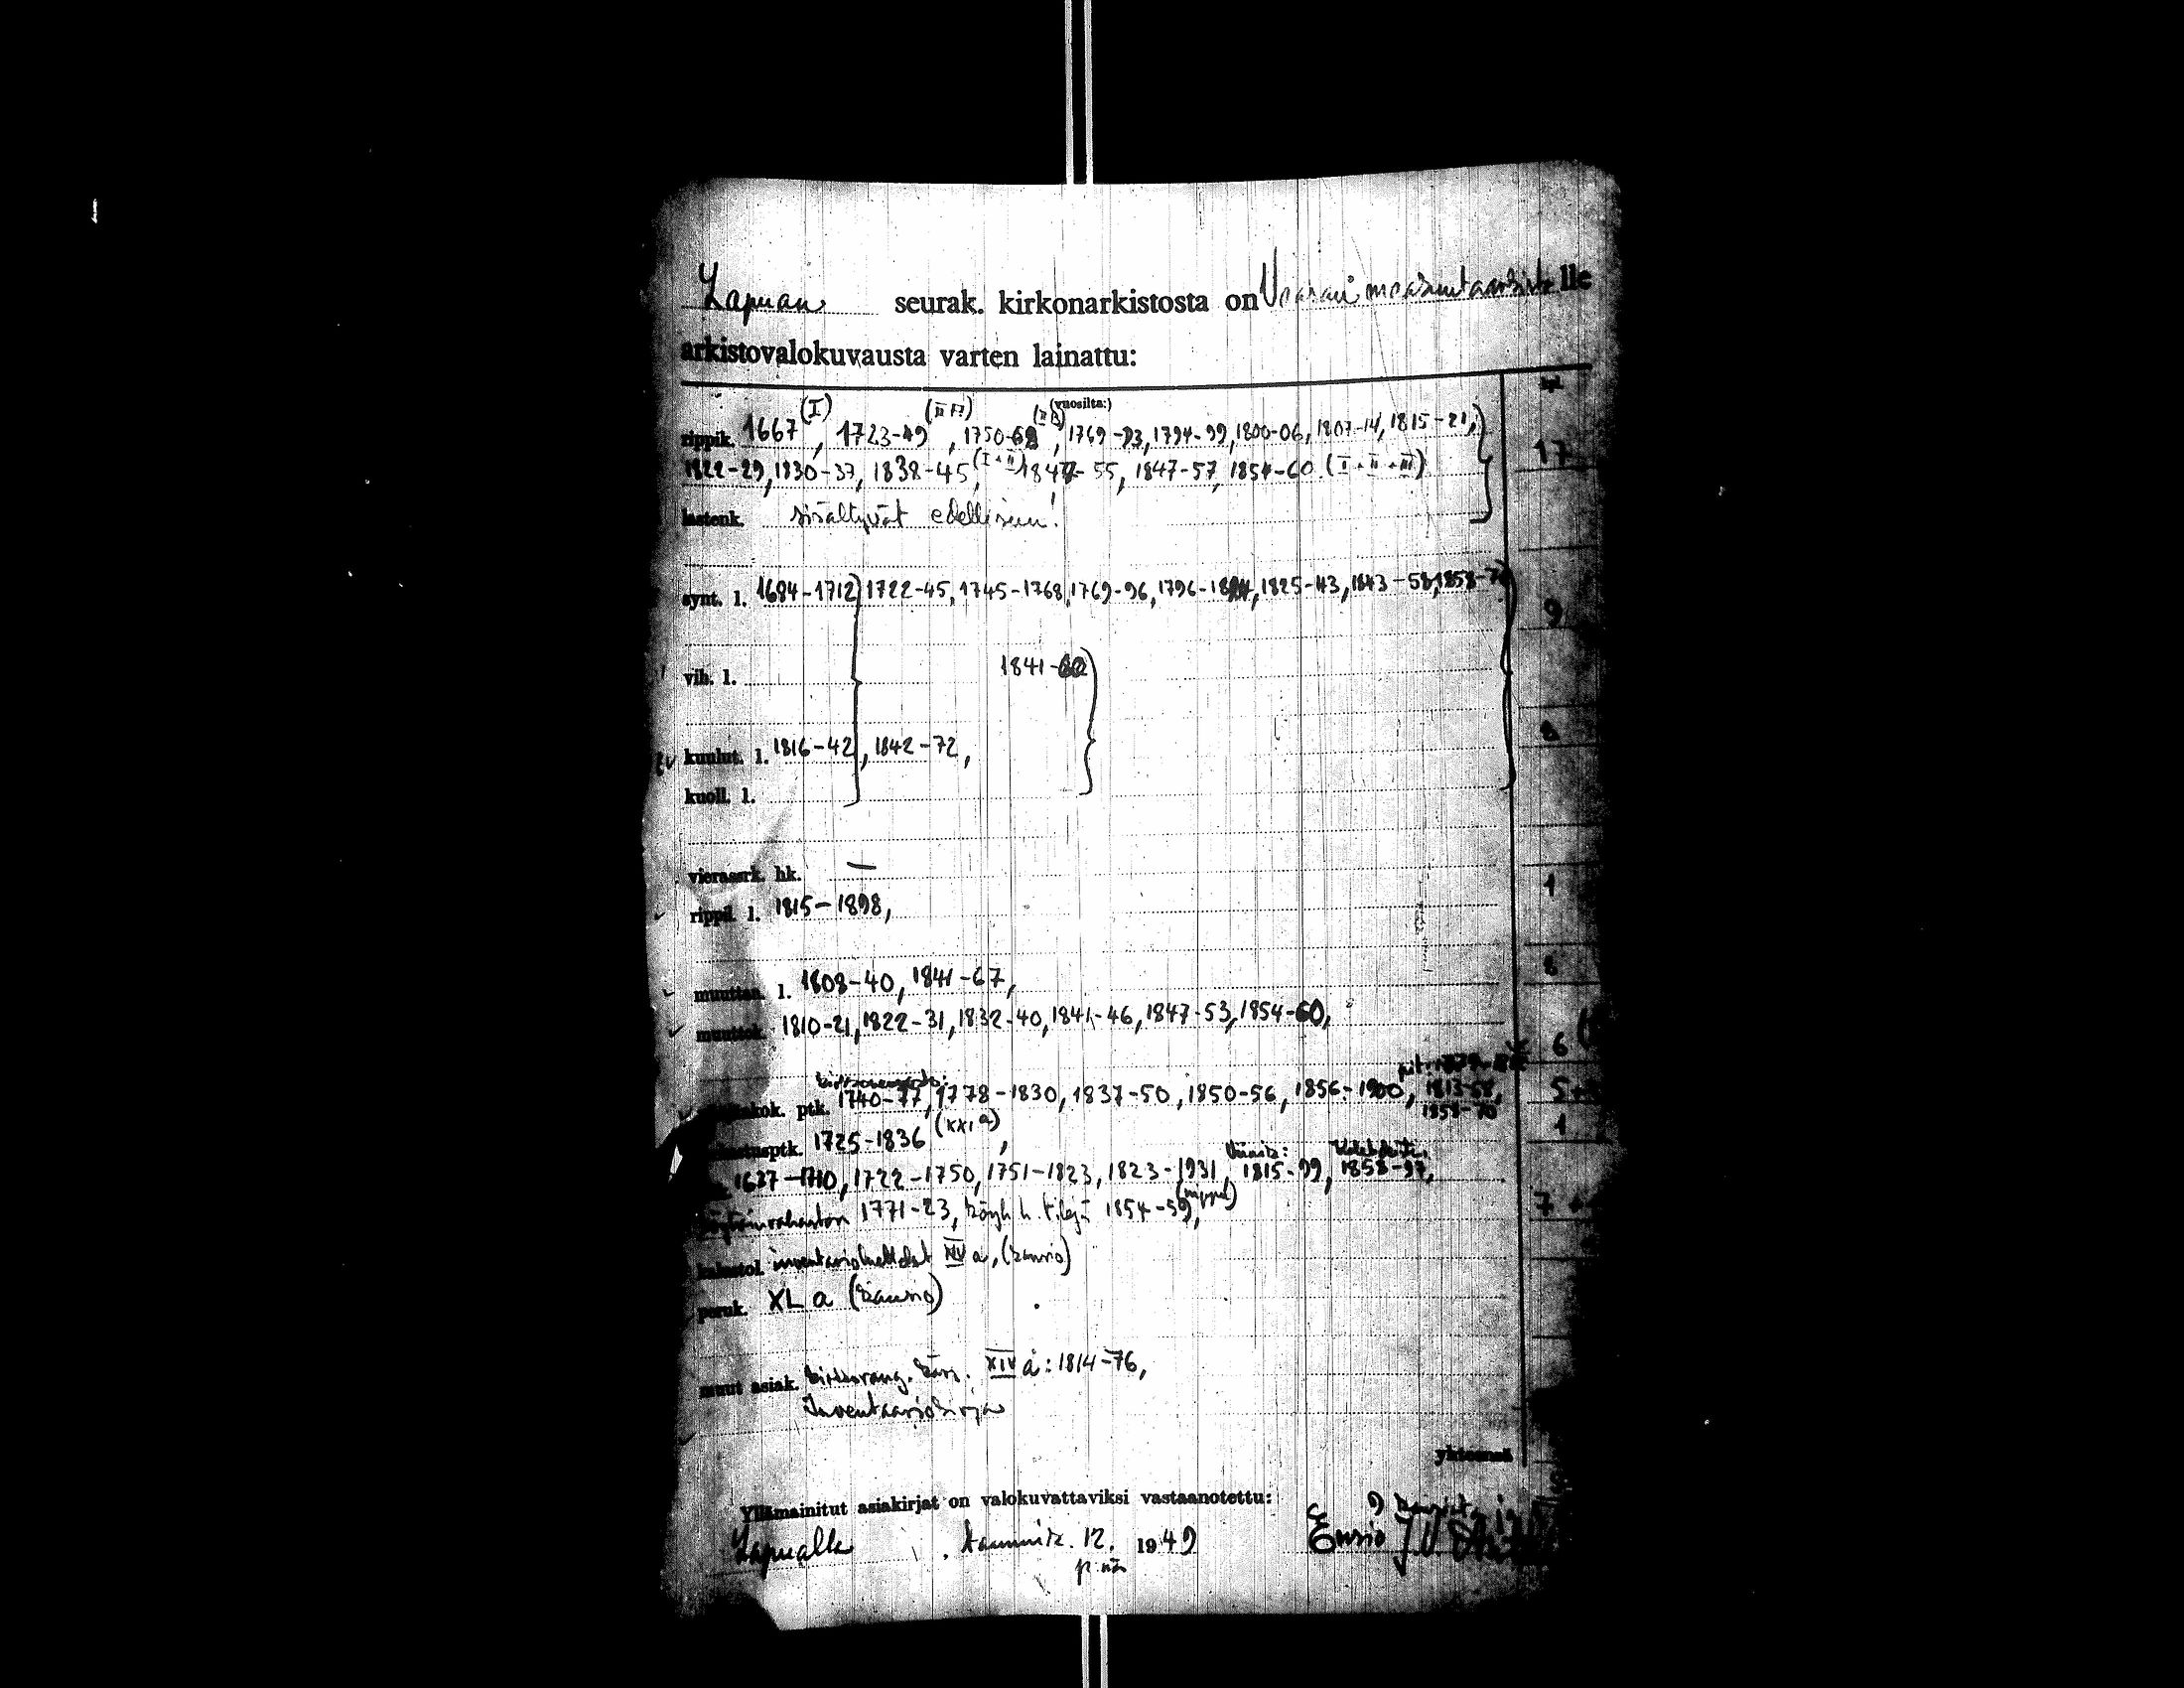 Lapuan seurak. kirkonarkistosta on Vaasan maakuntaarkistolle
arkistovalokuvausta varten lainattu:
(vuosilta:)
rippik. 1667 (I), 1723-49, 1750-68, 1769-93, 1794-99, 1800-06, 1807-14, 1815-21, 17
1822-29, 1830-37, 1838-45, (I+II) 1847-55, 1847-57, 1854-60 (I+II+III)
lastenk. sisältyvät edellisiin!
synt. l. 1694-1712 1722-45, 1745-1768, 1769-96, 1796-18, 1825-43, 1843-58, 1858-7 9
vih. l. 1841-60
kuulut. l. 1816-42, 1842-72, 8
kuoll. l.
vierassrk. hk. — 1
rippil. l. 1815-1898,
muuttan. l. 1808-40, 1841-67, 8
muuttok. 1810-21, 1822-31, 1832-40, 1841-46, 1847-53, 1854-60, 6
kok. ptk. 1740-77, 1778-1830, 1837-50, 1850-56, 1856-1900, 1813-58, 5
1858-70
ptk. 1725-1836 (XXI a), 1
1637-1710, 1722-1750, 1751-1823, 1823-1931, 1815-99, 1858-97,
1771-23, köyh. h. tilejä 1854-59, 7
kalustol. inventarioluettelot XIV a, (kansio)
peruk. XL a (kansio)
muut asiak. XIV a: 1814-76,
Inventaarjokirja
yhteensä
Yllämainitut asiakirjat on valokuvattaviksi vastaanotettu:
Lapualla tammik. 12. p:nä 1949 Ensio